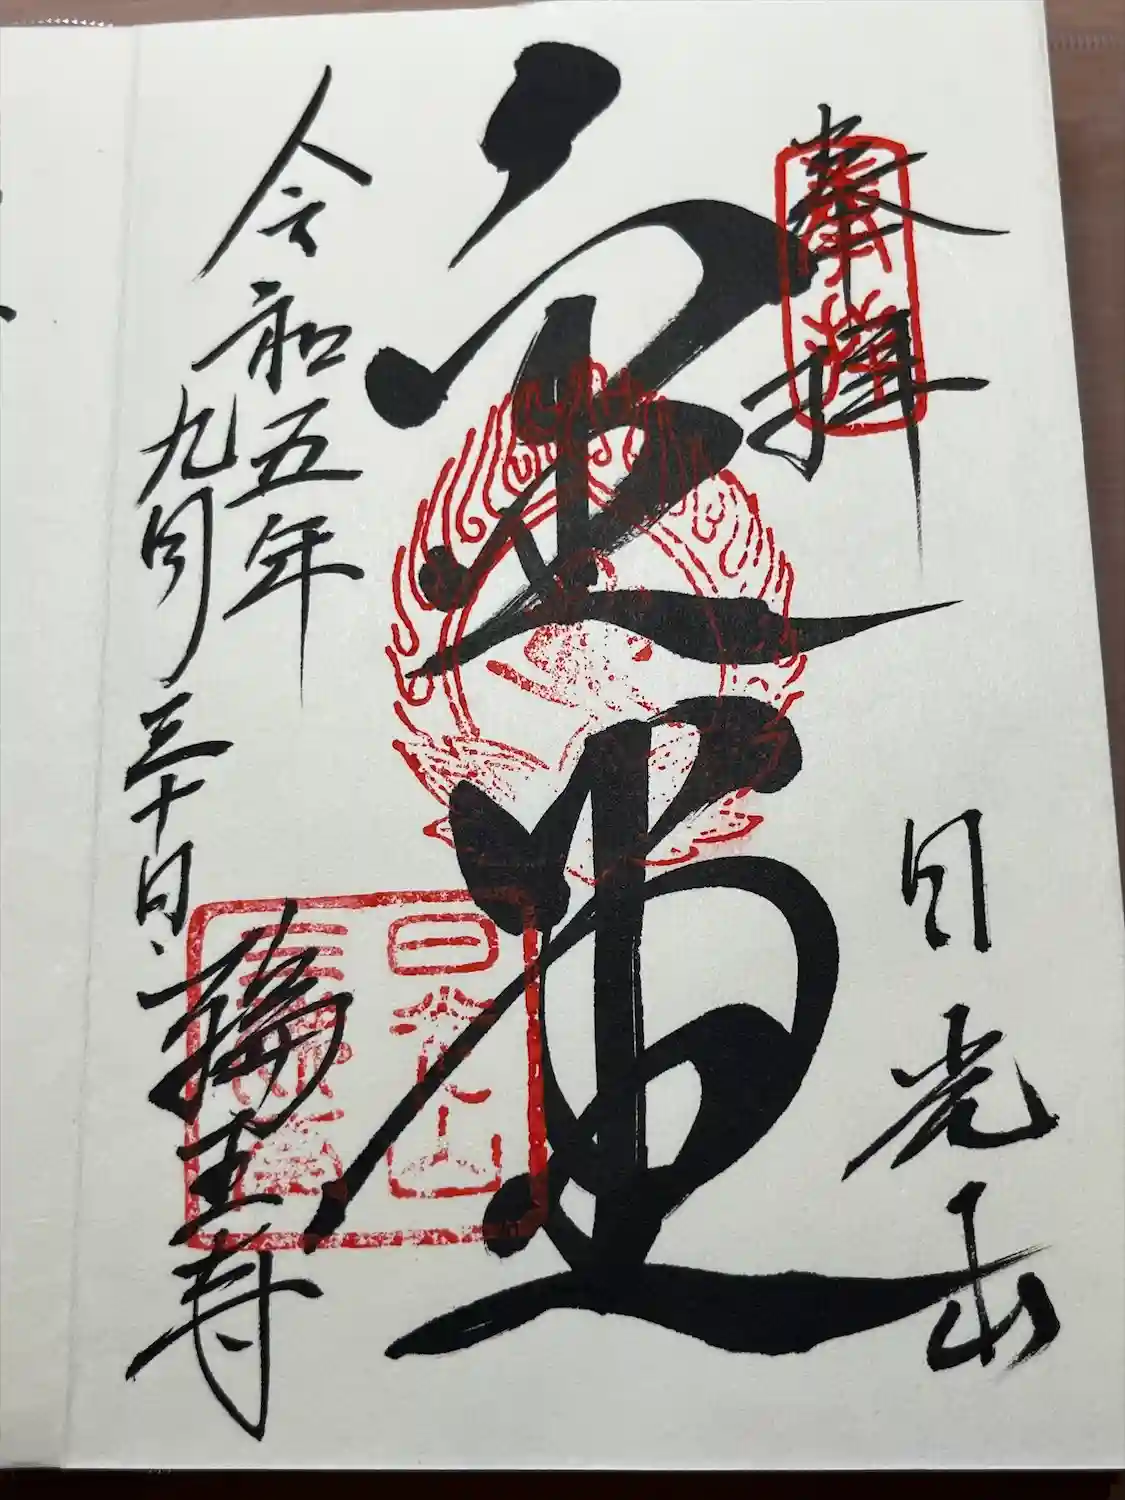 奉拝
日光山
金堂
令和五年
九月三十日
輪王寺
奉拝
日光山